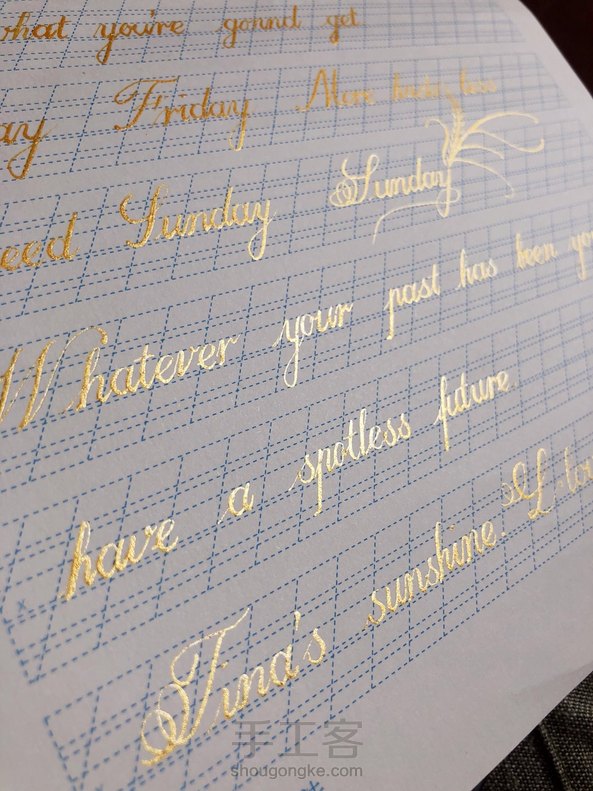 what you're gonna get
ay Friday More
eed Sunday Sunday
Whatever your past has been you
have a spotless future.
Tina's sunshine. I lov
手工客
shougongke.com